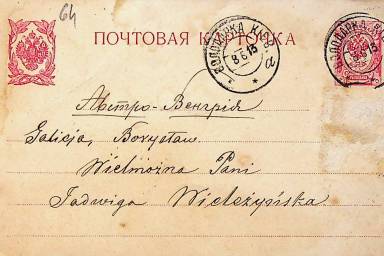 64
ПОЧТОВАЯ КАРТОЧКА
ВОЛОДАРКА КІЕВ.
8 6 13
а
Австро-Венгрія
Galicja, Borysław.
Wielmożna Pani
Jadwiga Wieleżyńska.